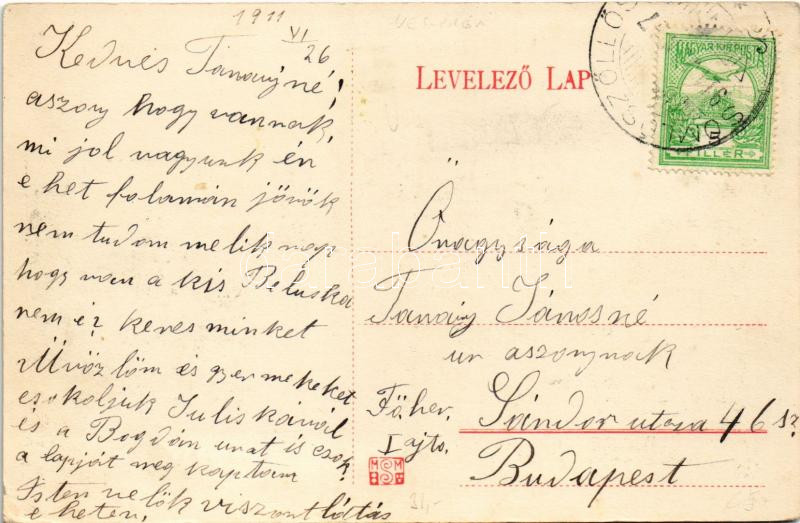 1911
VI
26
Kedves Tanainé!
aszony hogy vannak,
mi jol vagyunk én
e het folamán jövök
nem tudom melik nap
hogy van a kis Beluska
nem é? keres minket
Üvözlöm és gyermekeket
csokoljuk Juliskával
és a Bogdán urat is csok.
a lapját meg kaptam
Isten velök viszontlátás
e heten.
LEVELEZŐ LAP
MAGYAR KIR. POSTA
FILLER
Önagysága
Tanai Jánosné
ur aszonynak
Föher.
Sándor utcza 46 sz.
I ajto.
Budapest
MSM
darabanth.com